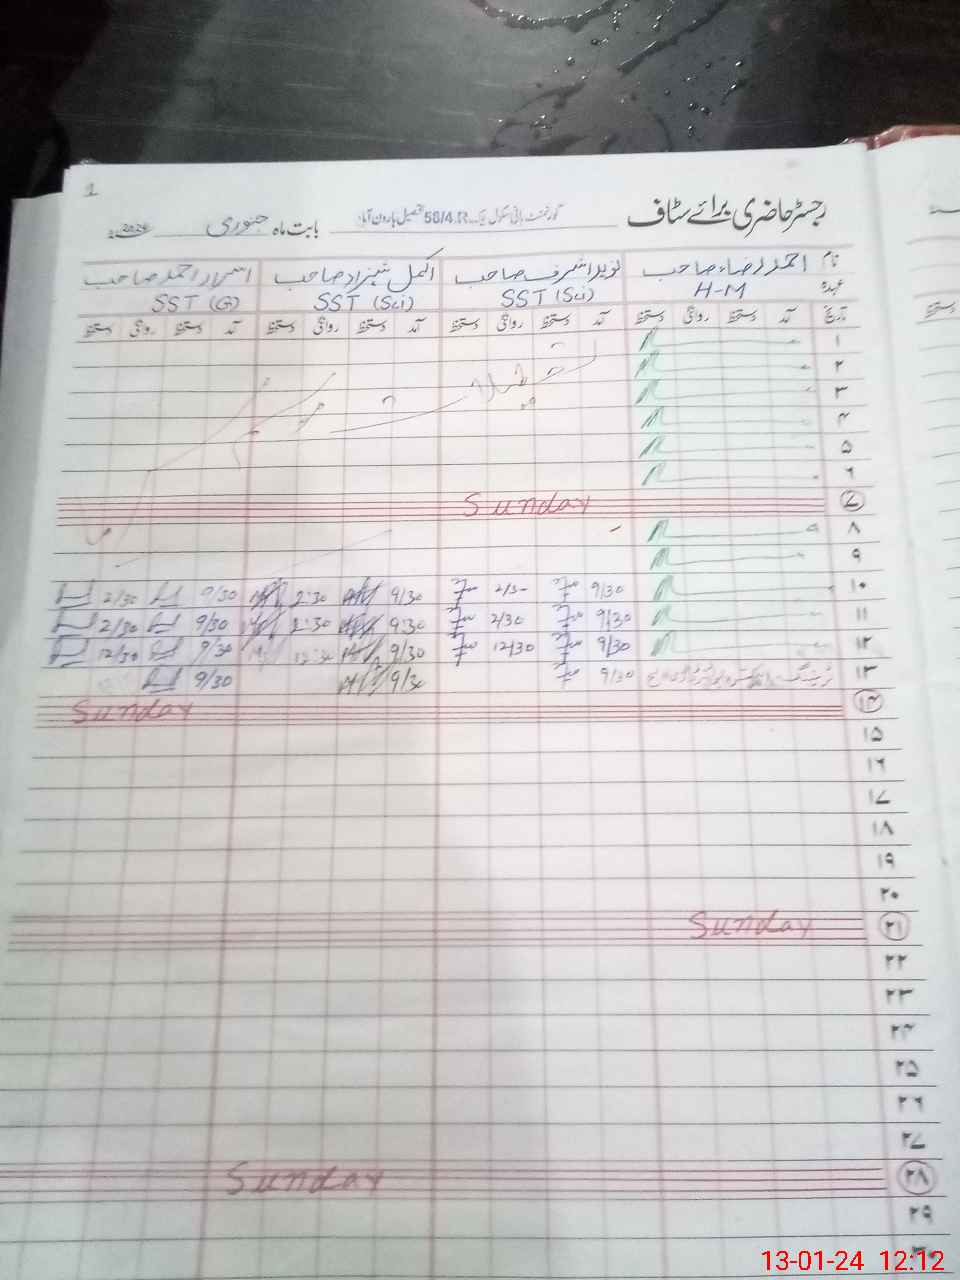 1
رجسٹر حاضری برائے سٹاف گورنمنٹ ہائی سکول چک 56/4.R تحصیل ہارون آباد بابت ماہ جنوری 2024
نام احمد رضاء صاحب نوید اشرف صاحب اکمل شہزاد صاحب اسرار احمد صاحب
عہدہ H-M SST (Sci) SST (Sci) SST (G)
تاریخ آمد دستخط روانگی دستخط آمد دستخط روانگی دستخط آمد دستخط روانگی دستخط آمد دستخط روانگی دستخط
۱
۲
۳
۴
۵
۶
۷ Sunday
۸
۹
۱۰ 9/30 2/30 9/30 2:30 9/30 2/30
۱۱ 9/30 2/30 9:30 2:30 9/30 2/30
۱۲ 9/30 12/30 9/30 12:30 9/30 12/30
۱۳ ٹریننگ 9/30 9/30 9/30
۱۴ Sunday
۱۵
۱۶
۱۷
۱۸
۱۹
۲۰
۲۱ Sunday
۲۲
۲۳
۲۴
۲۵
۲۶
۲۷
۲۸ Sunday
۲۹
۳۰
13-01-24 12:12